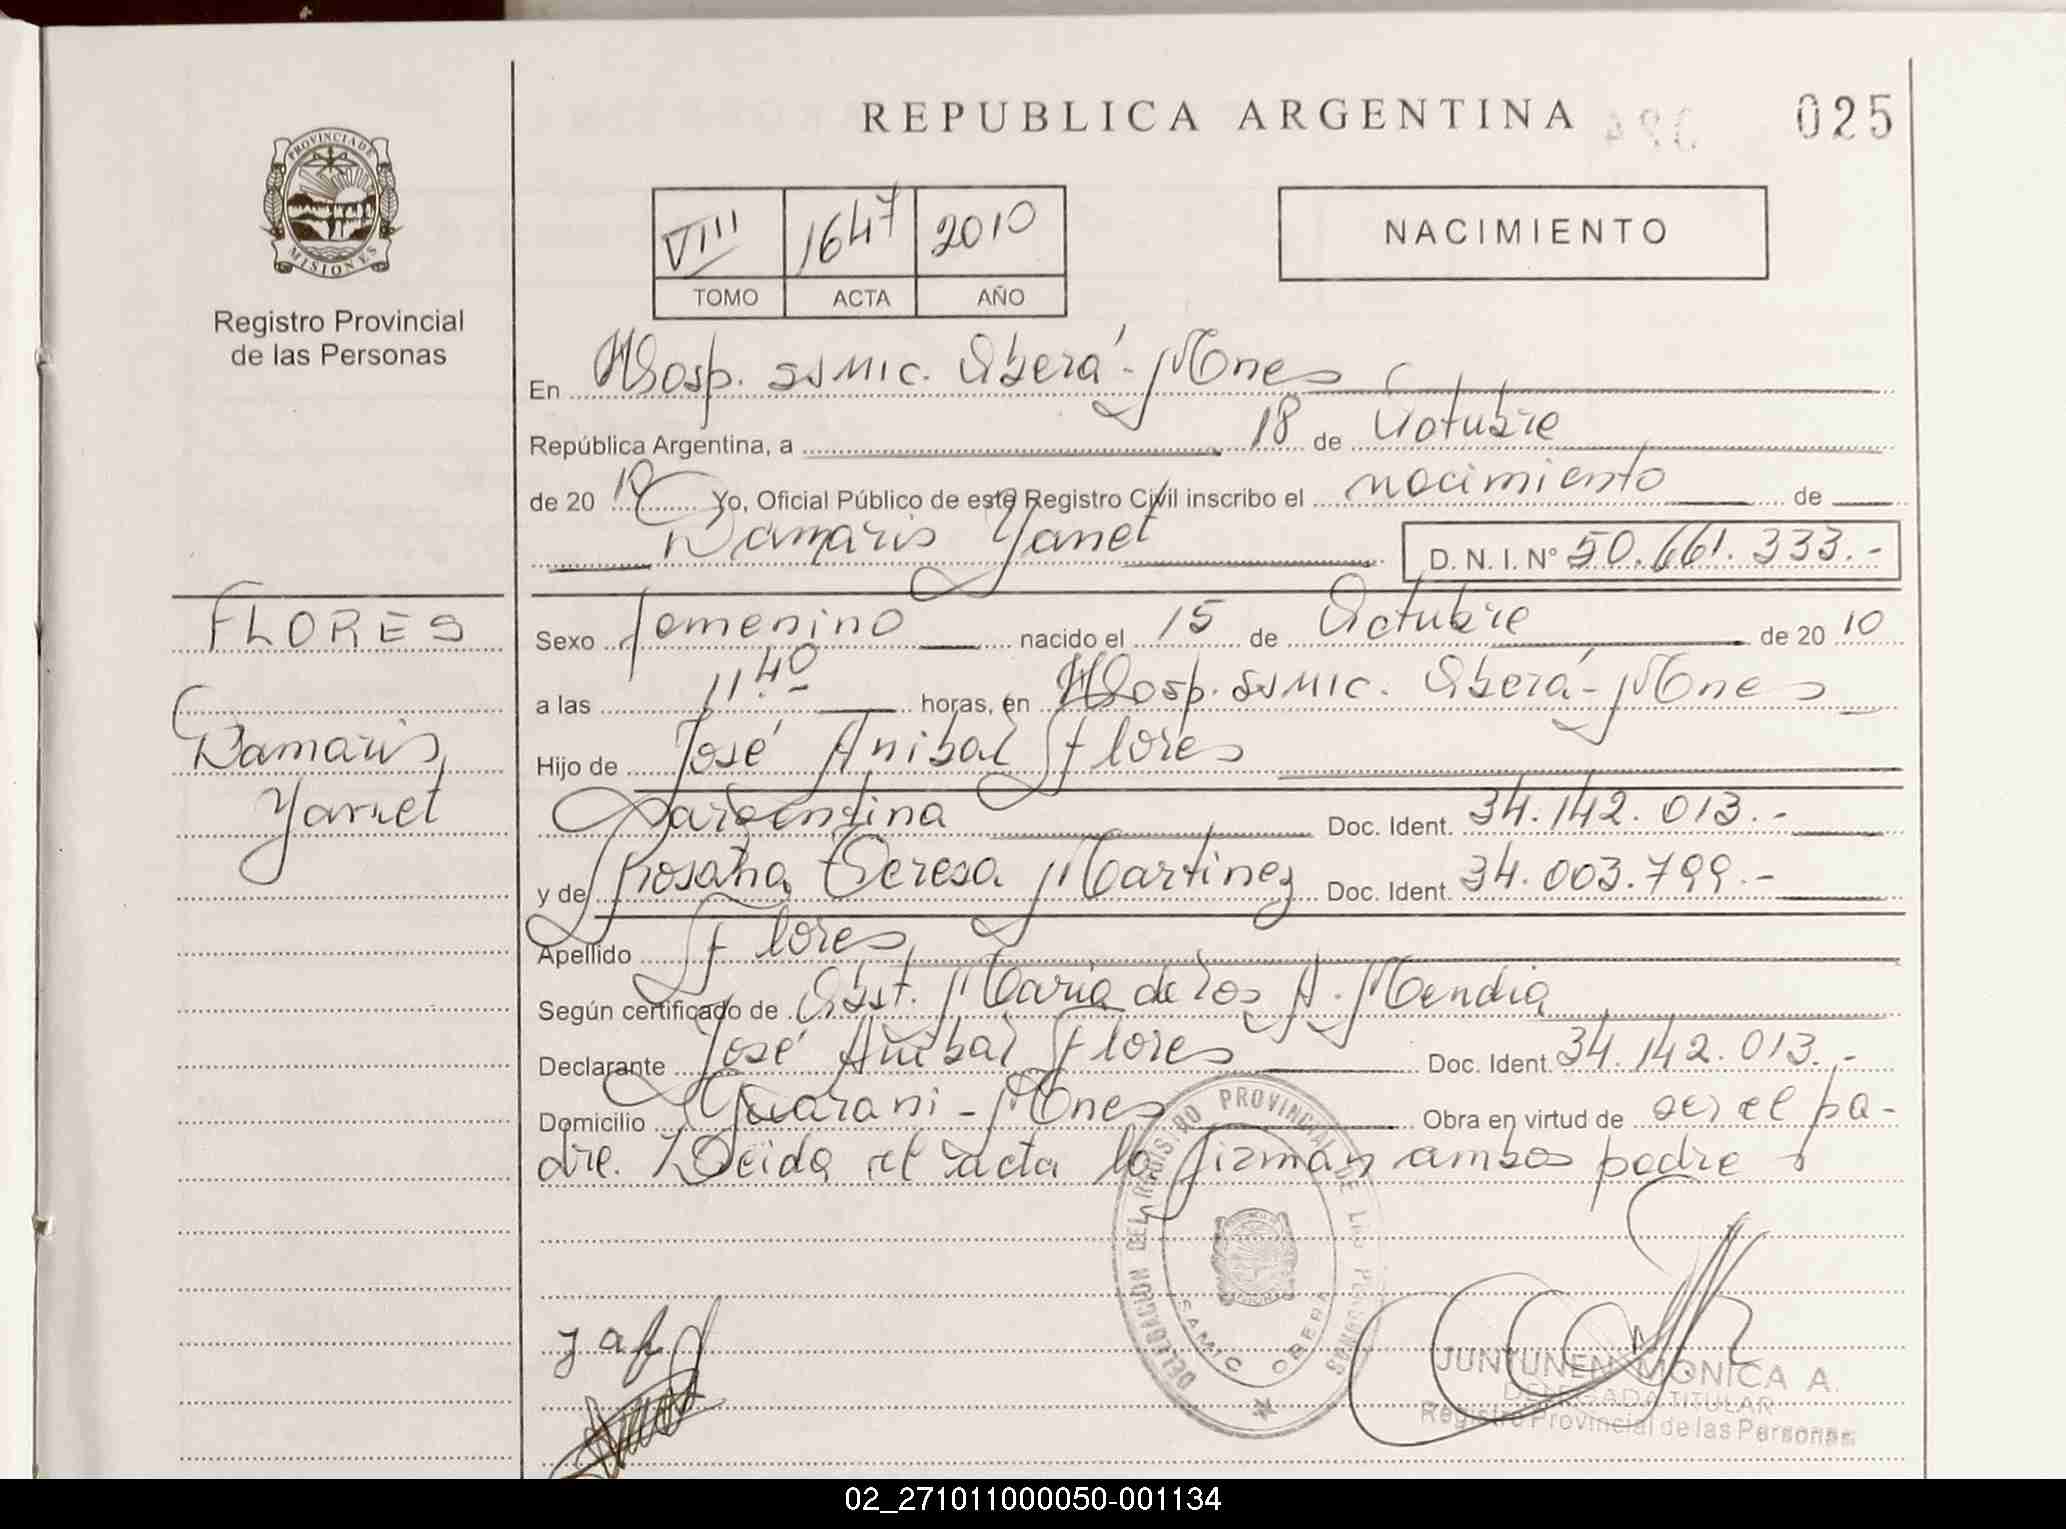 REPUBLICA ARGENTINA
025
PROVINCIA DE
MISIONES
Registro Provincial
de las Personas
VIII 1647 2010
TOMO ACTA AÑO
NACIMIENTO
En Hosp. SAMIC. Oberá - Mnes
República Argentina, a 18 de Octubre
de 20 10 Yo, Oficial Público de este Registro Civil inscribo el nacimiento de
Damaris Yanet D. N. I. N° 50.661.333.-
FLORES
Damaris
Yanet
Sexo femenino nacido el 15 de Octubre de 20 10
a las 11.40 horas, en Hosp. SAMIC. Oberá - Mnes
Hijo de José Anibal Flores
argentina Doc. Ident. 34.142.013.-
y de Rosana Teresa Martinez Doc. Ident. 34.003.799.-
Apellido Flores
Según certificado de Obst. Maria de los A. Mendia
Declarante José Anibal Flores Doc. Ident. 34.142.013.-
Domicilio Guarani - Mnes Obra en virtud de ser el pa-
dre. Leida el acta la firman ambos padres
DELEGACION DEL REGISTRO PROVINCIAL DE LAS PERSONAS
SAMIC OBERA
JUNTUNEN MONICA A.
DELEGADA TITULAR
Registro Provincial de las Personas
02_271011000050-001134